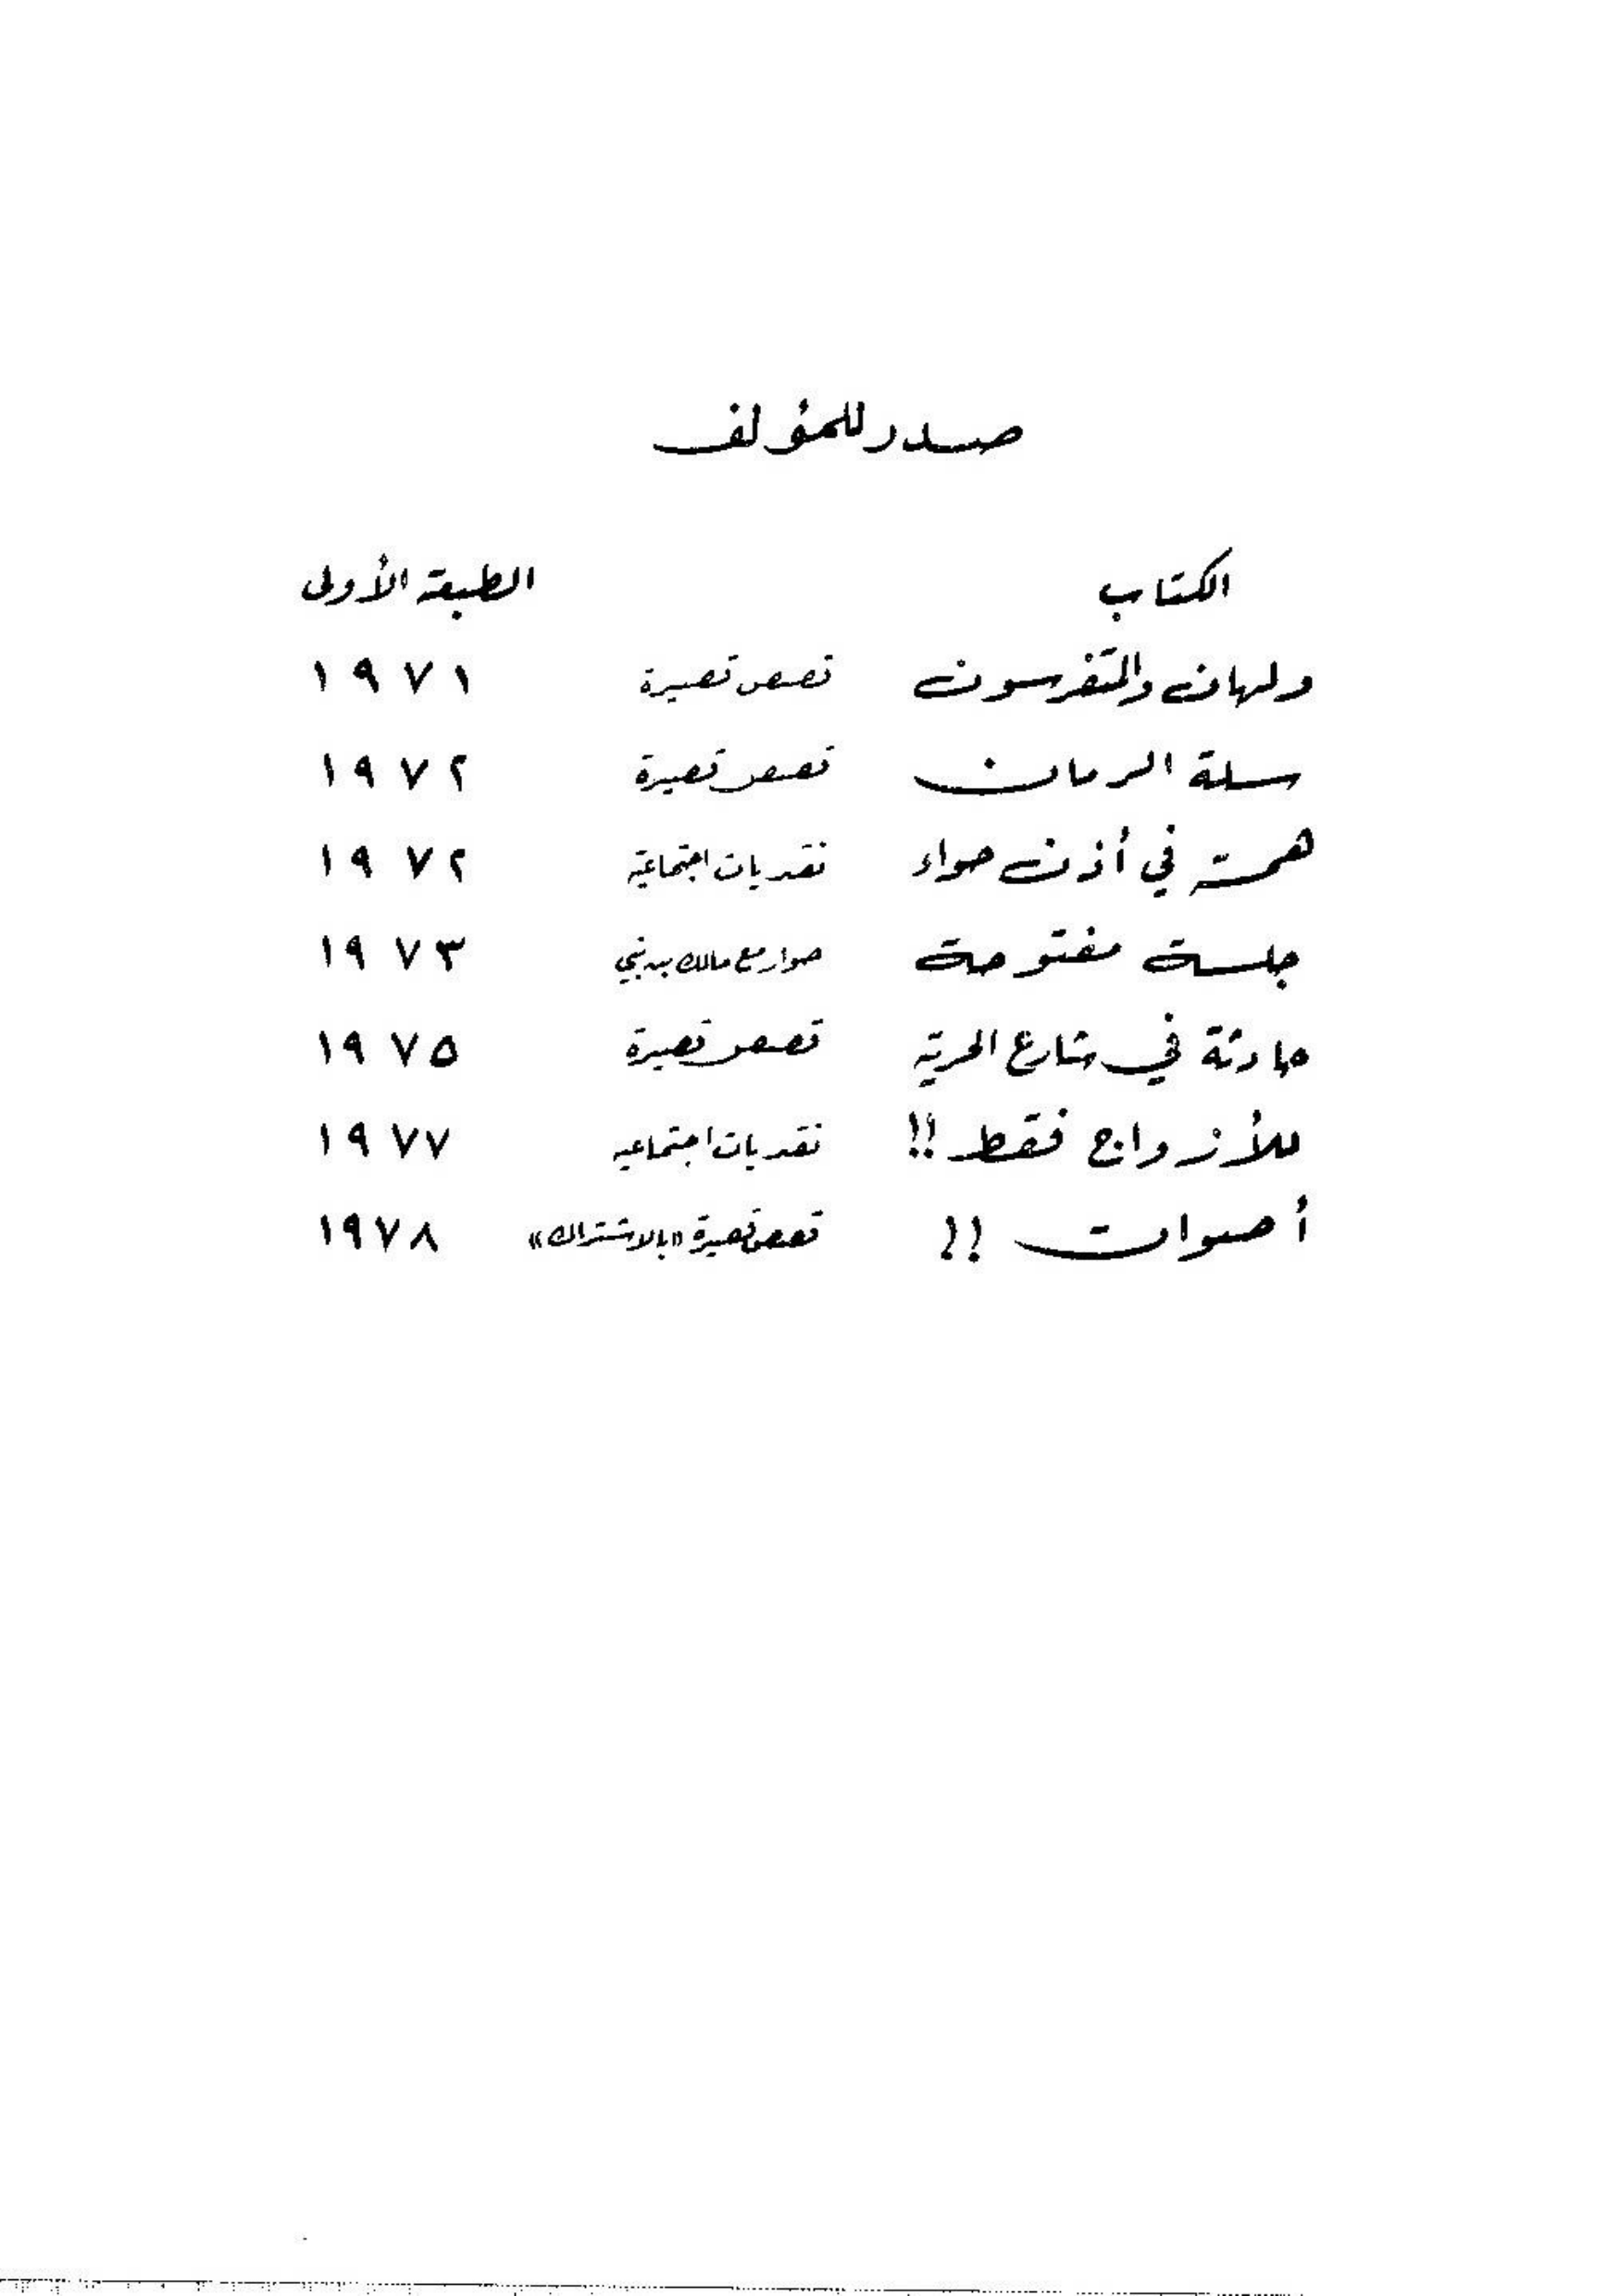 صدر للمؤلف
الكتاب الطبعة الأولى
ولهان والمتفرسون قصص قصيرة ١٩٧١
سلة الرمان قصص قصيرة ١٩٧٢
همسة في أذن حواء نقديات اجتماعية ١٩٧٢
جلسة مفتوحة حوار مع مالك بن نبي ١٩٧٣
حادثة في شارع الحرية قصص قصيرة ١٩٧٥
للأزواج فقط !! نقديات اجتماعيه ١٩٧٧
أصوات !! قصص قصيرة «بالاشتراك» ١٩٧٨